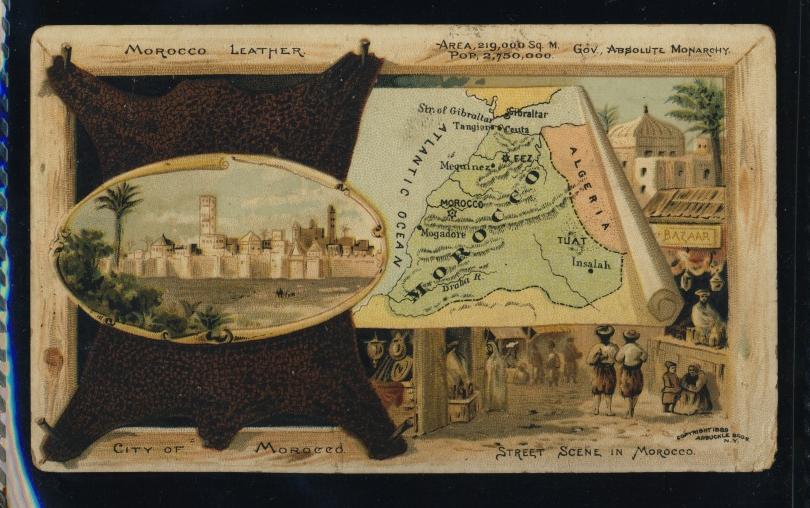 MOROCCO LEATHER.
AREA, 219,000 SQ. M.
POP, 2,750,000.
GOV., ABSOLUTE MONARCHY.
Str. of Gibraltar
Gibraltar
Tangier
Ceuta
ATLANTIC OCEAN
FEZ
Mequinez
ALGERIA
MOROCCO
Mogadore
MOROCCO
TUAT
Insalah
Draha R.
BAZAAR
COPYRIGHT 1889
ARBUCKLE BROS
N.Y.
CITY OF MOROCCO.
STREET SCENE IN MOROCCO.